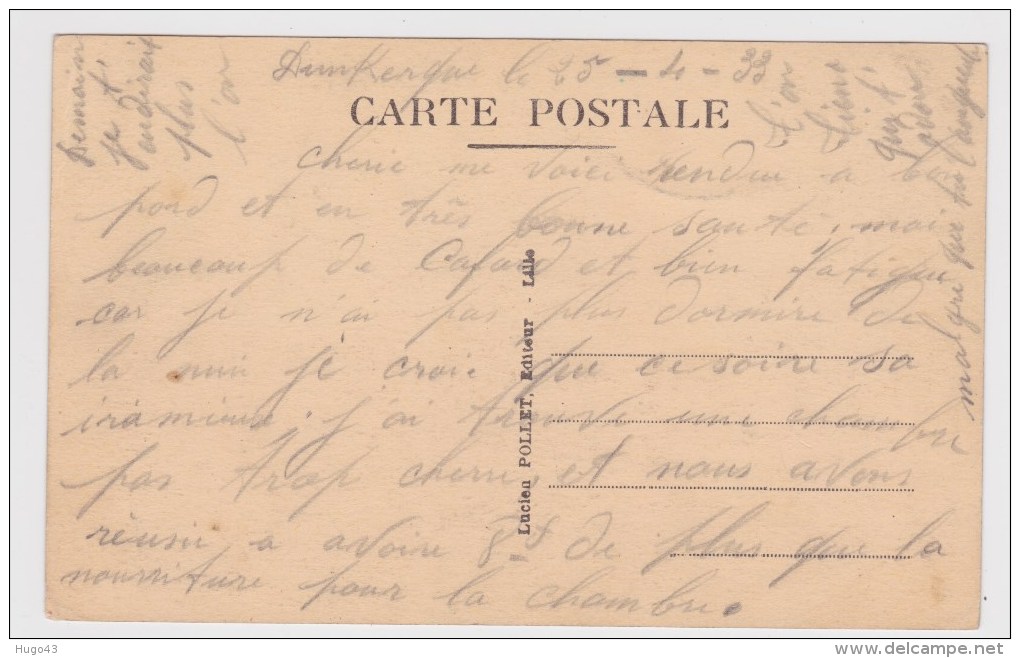 Dunkerque le 25 - 4 - 33
CARTE POSTALE
chérie me voici rendue a bon
pord et en très bonne santé, mais
beaucoup de Cafard et bien fatigue
car je n'ai pas plus dormire de
la nuit je croie que ce soire sa
iramieux. j'ai trouvé une chambre
pas trop cherre, et nous avons
réussi a avoire 8f de plus que la
nourriture pour la chambre.
Demain
je t'
plus
l'or
malgré que tu
Lucien POLLET, Editeur - Lille
Hugo43
www.delcampe.net